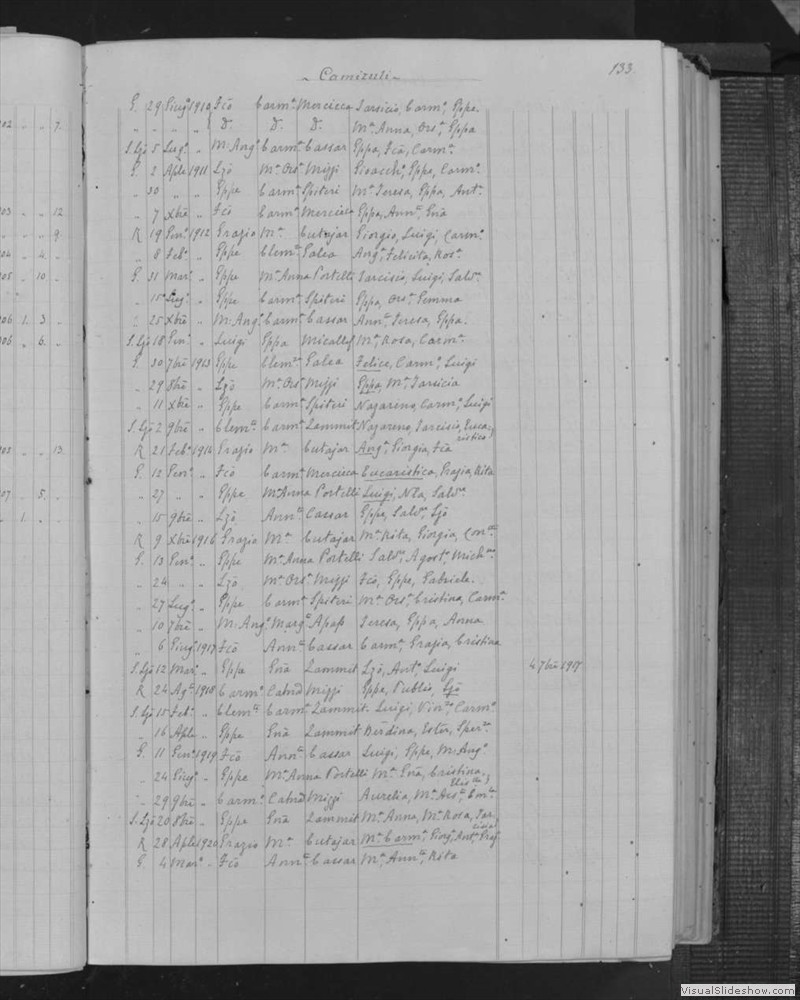 133
~ Camizuli ~
G. 29 Giugº 1910 Fcõ Carmª Mercieca Tarsicio, Carmº, Gppe.
02 „ „ 7. „ „ „ „ D. D. D. Mª Anna, Orsª, Gppa
S.Ljõ 5 Lugº „ M: Angº Carmª Cassar Gppa, Fcã, Carmª
G. 2 Aple 1911 Lzõ Mª Orsª Mizzi Gioacchº, Gppe, Carmº
„ 30 „ „ Gppe Carmª Spiteri Mª Teresa, Gppa, Antª
03 „ „ 12 „ 7 Xbre „ Fcõ Carmª Mercieca Gppa, Annta, Gnã
„ „ „ 9. R 19 Genº 1912 Grazio Mª Cutajar Giorgio, Luigi, Carmº
04 „ 4. „ „ 8 Febº „ Gppe Clemta Galea Angª, Felicita, Rosª
05 „ 10. „ G. 31 Marº „ Gppe Mª Anna Portelli Tarcisio, Luigi, Salvº
„ 15 Lugº „ Gppe Carmª Spiteri Gppa, Orsª, Gemma
06 1. 3. „ „ 25 Xbre „ M: Angº Carmª Cassar Annta, Teresa, Gppa.
06 „ 6. „ S.Ljõ 18 Genº „ Luigi Gppa Micallef Mª, Rosa, Carmª
G. 30 7bre 1913 Gppe Clemta Galea Felice, Carmº, Luigi
„ 29 8bre „ Lzõ Mª Orsª Mizzi Gppa, Mª, Tarsicia
„ 11 Xbre „ Gppe Carmª Spiteri Nazareno, Carmº, Luigi
S.Ljõ 2 9bre „ Clemte Carmª Zammit Nazareno, Tarcisio, Eucaristico
08 „ „ 13. R 21 Febº 1914 Grazio Mª Cutajar Angª, Giorgia, Fcã
G. 12 Genº „ Fcõ Carmª Mercieca Eucaristica, Grazia, Rita
07 „ 5. „ „ 27 „ „ Gppe Mª Anna Portelli Luigi, Nla, Salvº
„ 1. „ „ 15 9bre „ Lzõ Annta Cassar Gppe, Salvº, Ljõ
R 9 Xbre 1916 Grazio Mª Cutajar Mª Rita, Giorgia,
G. 13 Genº „ Gppe Mª Anna Portelli Salvª, Agostª, Michª
„ 24 „ „ Lzõ Mª Orsª Mizzi Fcõ, Gppe, Gabriele.
„ 27 Lugº „ Gppe Carmª Spiteri Mª Orsª, Cristina, Carmª
„ 10 7bre „ M: Angº Margª Apap Teresa, Gppa, Anna
„ 6 Giugº 1917 Fcõ Annta Cassar Carmª, Grazia, Cristina
S.Ljõ 12 Marº „ Gppe Gnã Zammit Lzõ, Antº, Luigi 4 7bre 1917
R 24 Agº 1918 Carmº Catnã Mizzi Gppe, Publio, Ljõ
S.Ljõ 15 Febº „ Clemte Carmª Zammit Luigi, Vinzº, Carmº
„ 16 Aple „ Gppe Gnã Zammit Berdina, Ester, Sperza
G. 11 Genº 1919 Fcõ Annta Cassar Luigi, Gppe, M: Angº
„ 24 Giugº „ Gppe Mª Anna Portelli Mª Gnã, Cristina,
„ 29 9bre „ Carmº Catnã Mizzi Aurelia, Mª
S.Ljõ 20 8bre „ Gppe Gnã Zammit Mª Anna, Mª Rosa, Tarcisia
R 28 Aple 1920 Grazio Mª Cutajar Mª Carmª, Giorgª, Antª
G. 4 Marº „ Fcõ Annta Cassar Mª, Annta, Rita
VisualSlideshow.com